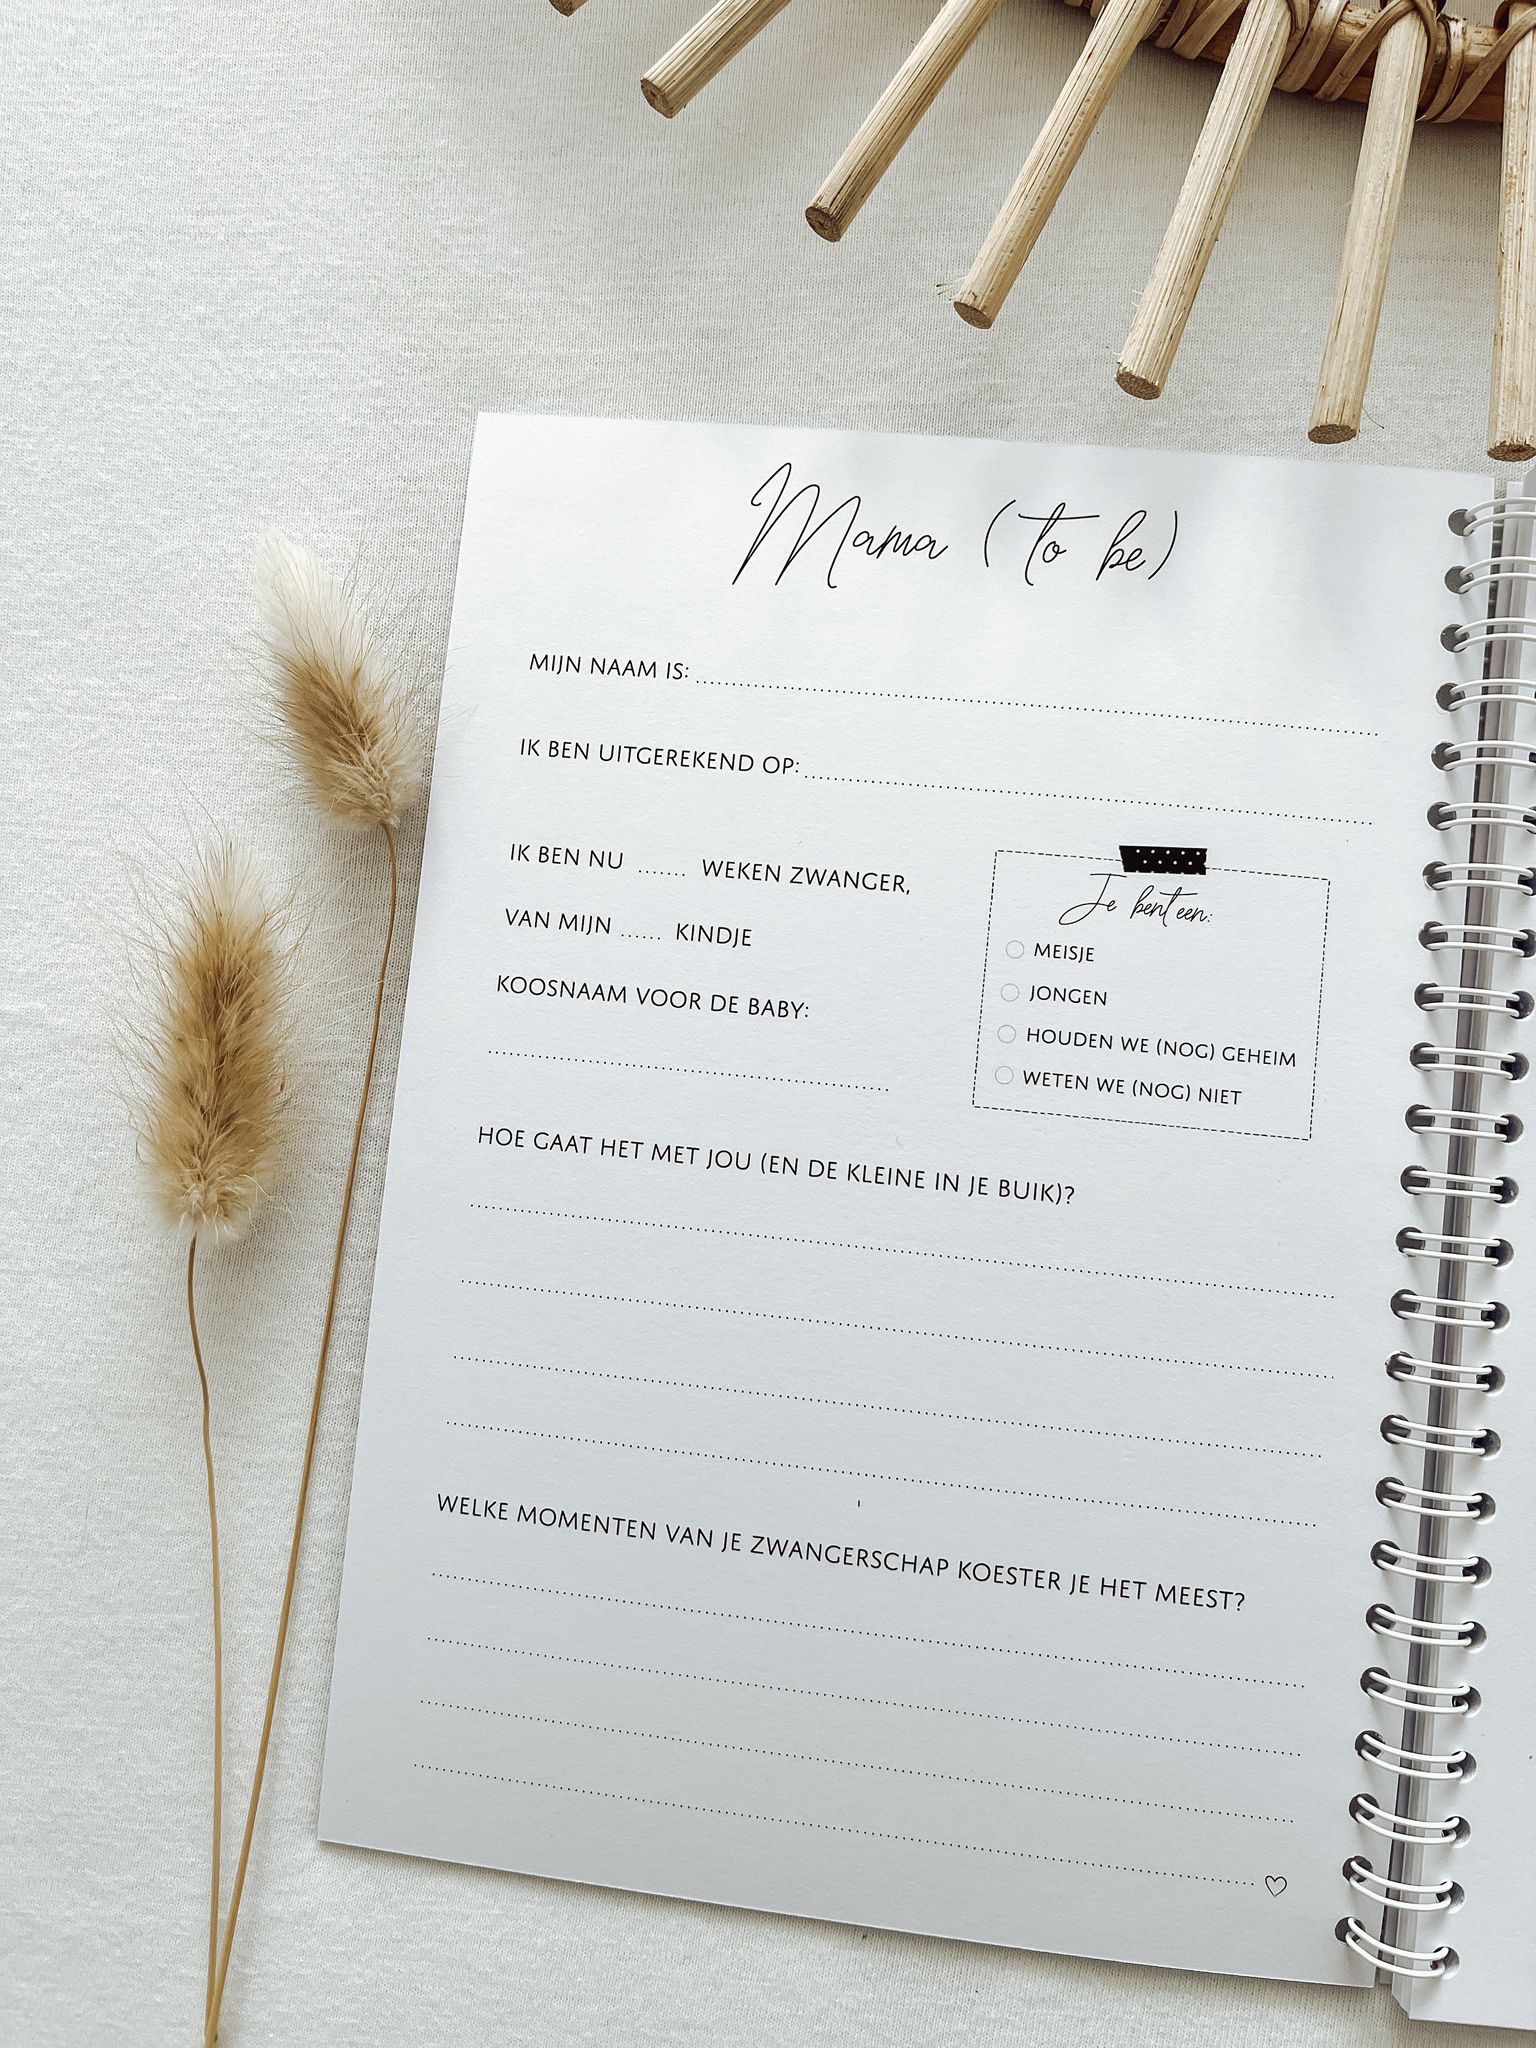 Mama (to be)
MIJN NAAM IS:
IK BEN UITGEREKEND OP:
IK BEN NU ....... WEKEN ZWANGER,
VAN MIJN ...... KINDJE
KOOSNAAM VOOR DE BABY:
Je bent een:
MEISJE
JONGEN
HOUDEN WE (NOG) GEHEIM
WETEN WE (NOG) NIET
HOE GAAT HET MET JOU (EN DE KLEINE IN JE BUIK)?
WELKE MOMENTEN VAN JE ZWANGERSCHAP KOESTER JE HET MEEST?